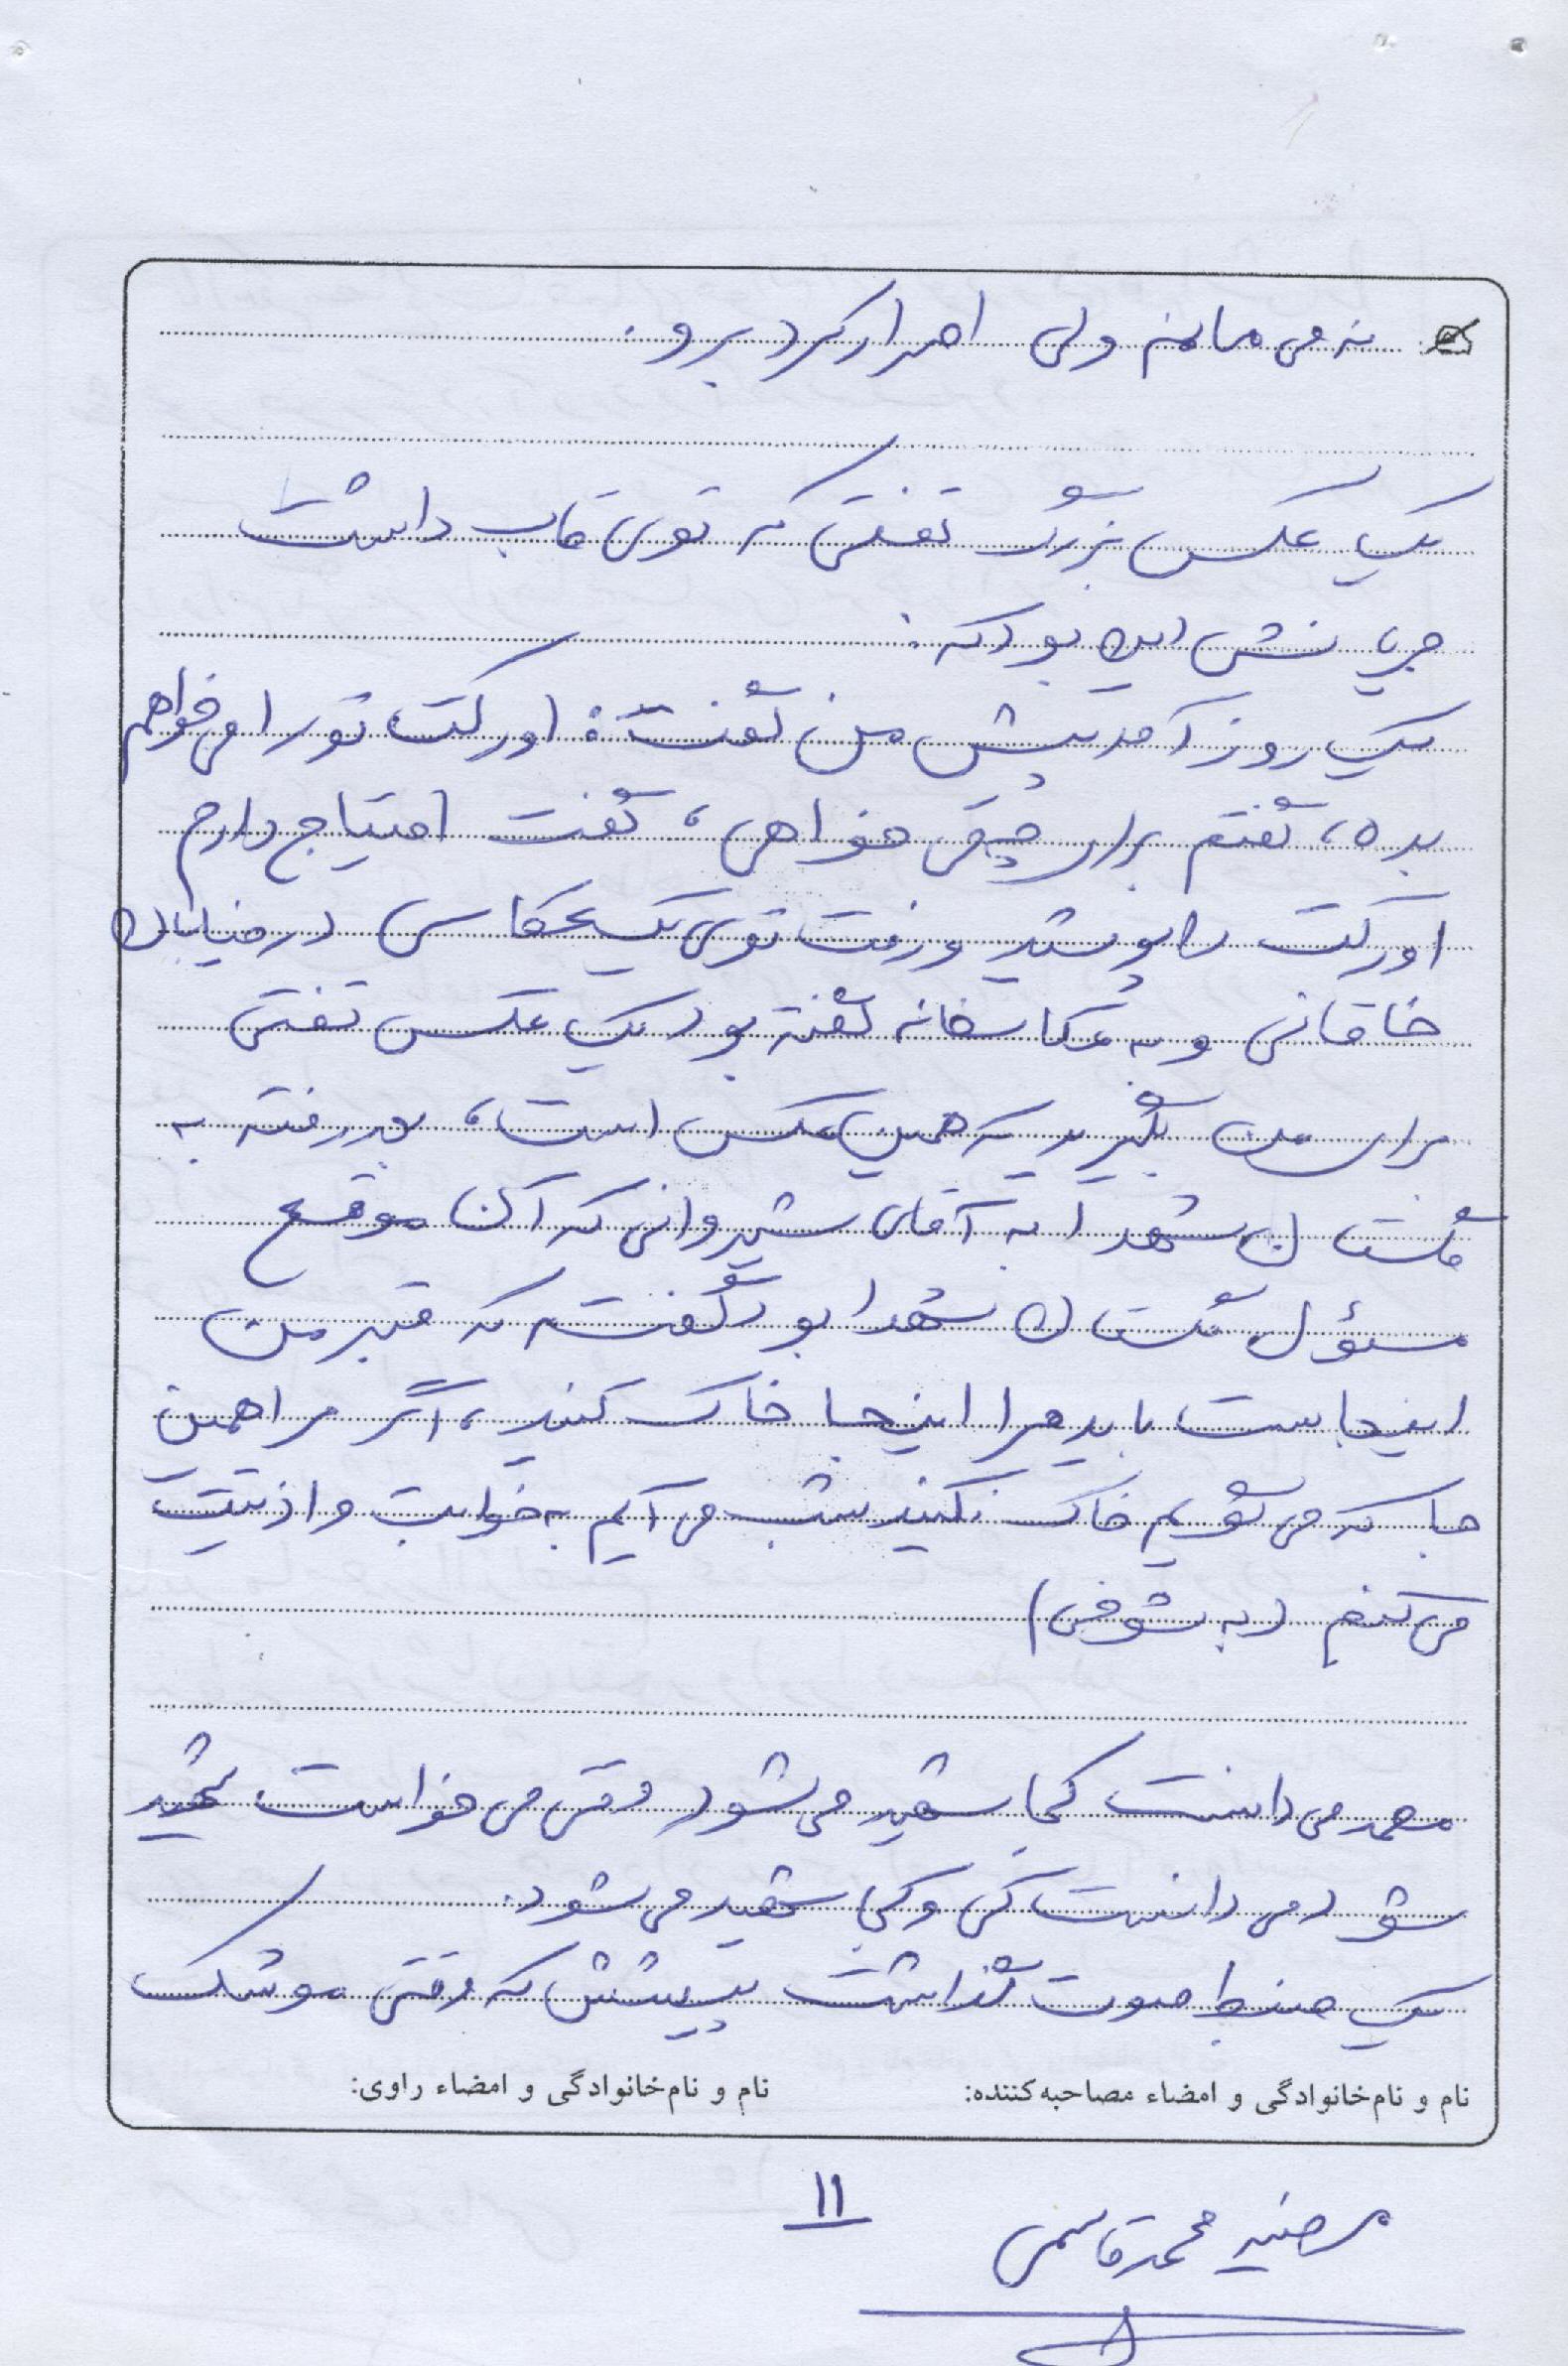 نه می مانم ولی اصرار کرد برو.
یک عکس بزرگ نفتی که توی قاب داشت
جریانش این بود که:
یک روز آمد پیش من گفت: اورکت تو را می خواهم
بده، گفتم برای چی می خواهی، گفت احتیاج دارم
اورکت را پوشید و رفت توی یک عکاسی در خیابان
خاقانی و به عکاسخانه گفته بود یک عکس نفتی
برای من بگیرید که همین عکس است، بعد رفته به
گلستان شهدا به آقای شیروانی که آن موقع
مسئول گلستان شهدا بود گفته که قبر من
اینجاست باید مرا اینجا خاک کنید، اگر مرا همین
جا که می گویم خاک نکنید شب می آیم به خوابت و اذیتت
می کنم (به شوخی)
محمد می دانست کجا شهید می شود وقتی می خواست شهید
شود می دانست کی و کجا شهید می شود.
یک ضبط صوت گذاشت پیشش که وقتی موشک
نام و نام‌خانوادگی و امضاء مصاحبه‌کننده: نام و نام‌خانوادگی و امضاء راوی:
مرضیه محمدقاسمی ۱۱